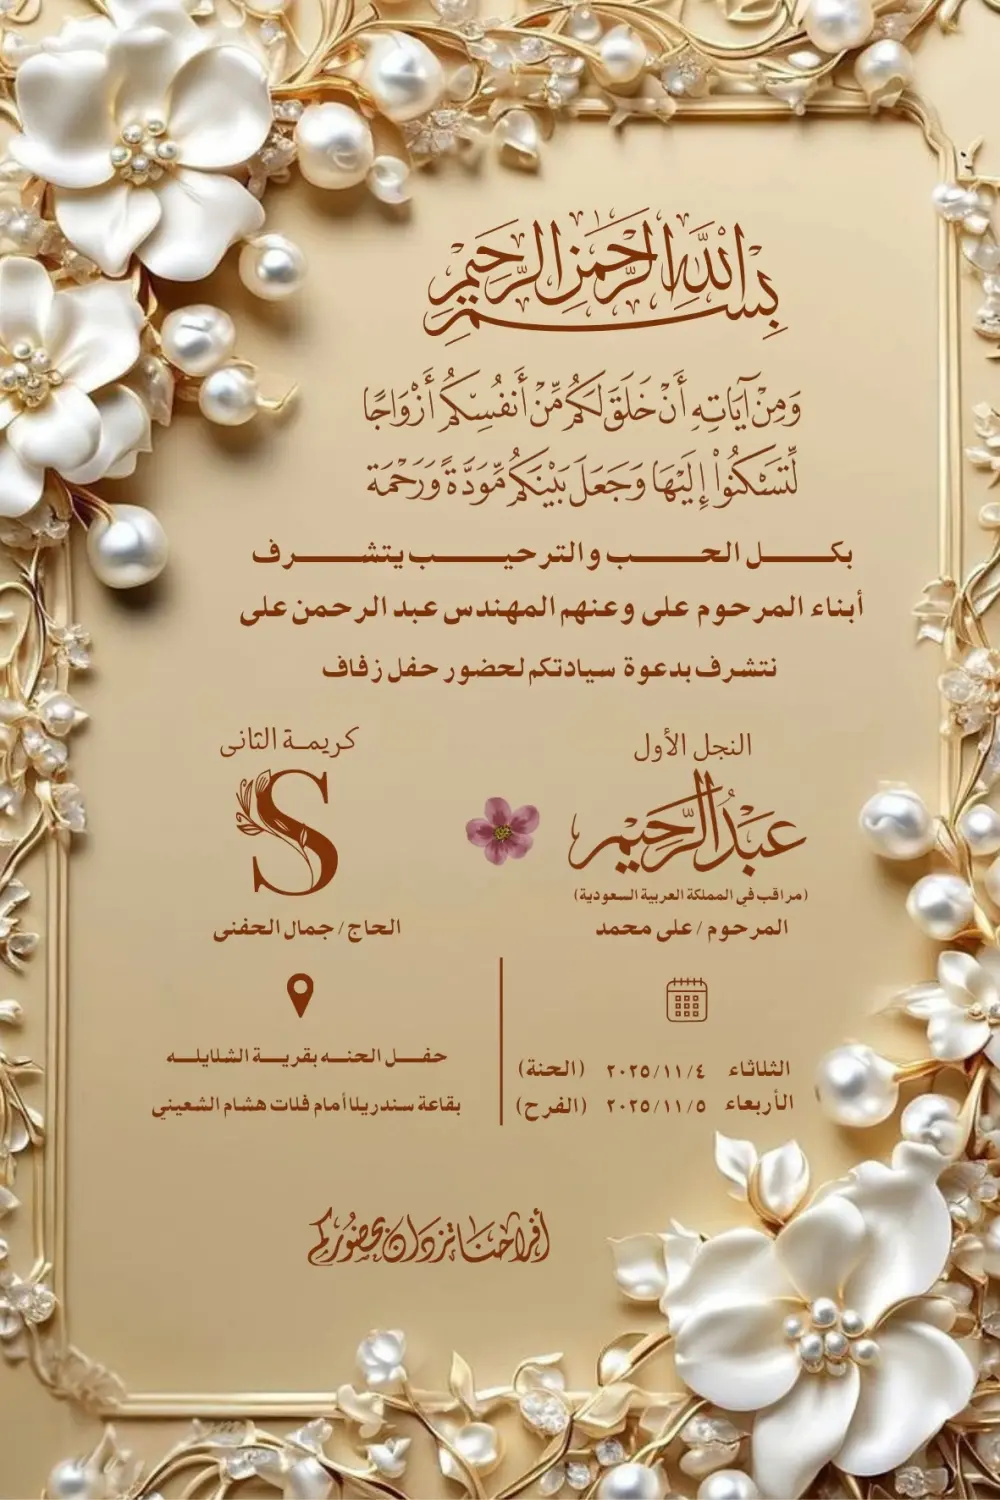 بسم الله الرحمن الرحيم
وَمِنْ آيَاتِهِ أَنْ خَلَقَ لَكُم مِّنْ أَنفُسِكُمْ أَزْوَاجًا
لِّتَسْكُنُواْ إِلَيْهَا وَجَعَلَ بَيْنَكُم مَّوَدَّةً وَرَحْمَة
بكـــل الحـــب والترحيـــب يتشـــرف
أبناء المرحوم على وعنهم المهندس عبد الرحمن على
نتشرف بدعوة سيادتكم لحضور حفل زفاف
النجل الأول
عَبْدُ الرَّحِيم
(مراقب في المملكة العربية السعودية)
المرحوم / على محمد
كريمـة الثانى
S
الحاج / جمال الحفنى
الثلاثاء ٢٠٢٥/١١/٤ (الحنة)
الأربعاء ٢٠٢٥/١١/٥ (الفرح)
حفـــل الحنـــه بقريـــة الشلايلـــه
بقاعة سندريلا أمام فلات هشام الشعيني
أفراحنا تزدان بحضوركم